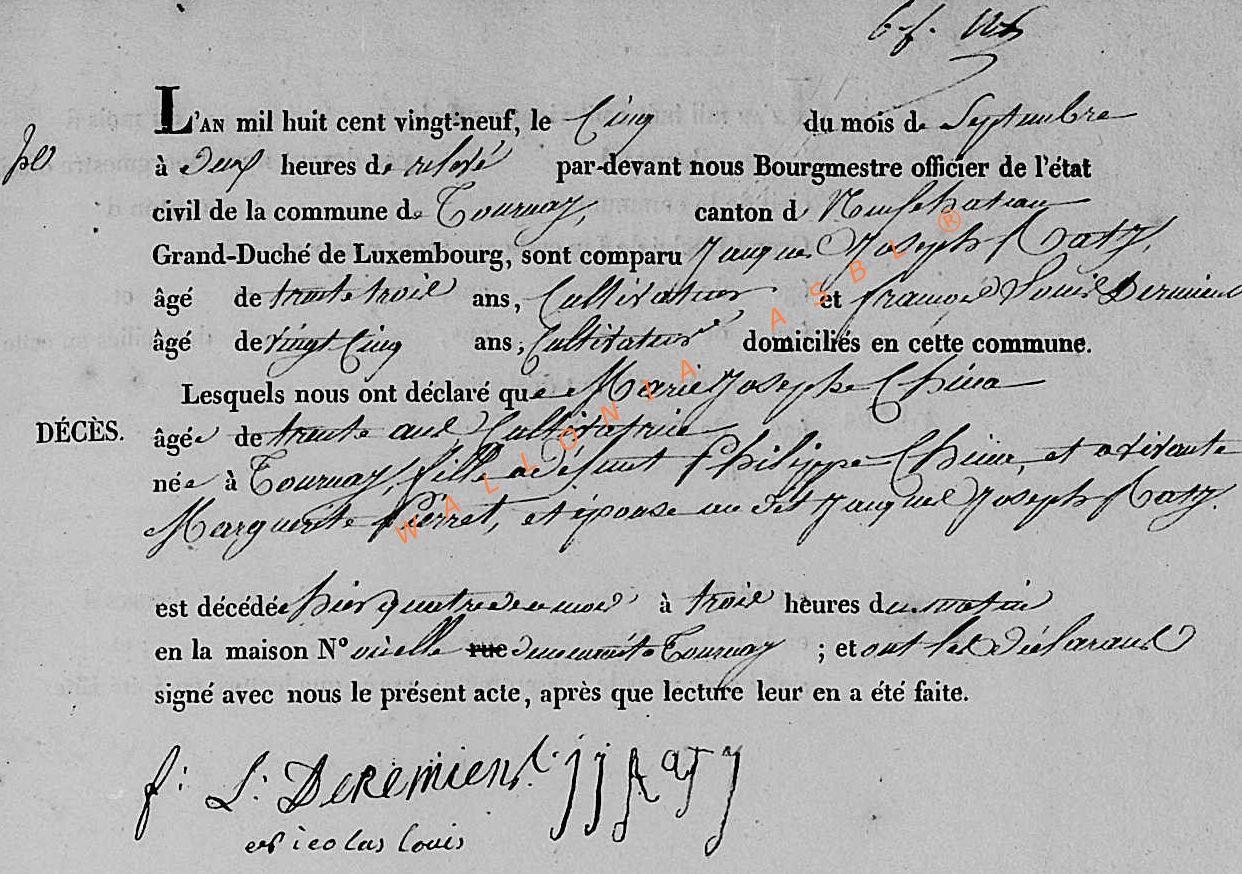 L'AN mil huit cent vingt-neuf, le Cinq du mois de Septembre
à deux heures de relevé par-devant nous Bourgmestre officier de l'état
civil de la commune de Tournay, canton de Neufchateau
Grand-Duché de Luxembourg, sont comparu Jaques Joseph
âgé de trente trois ans, Cultivateur et françois Louis Deremiens
âgé de vingt Cinq ans, Cultivateur domiciliés en cette commune.
Lesquels nous ont déclaré que Marie Josephe China
DÉCÈS.
âgée de trente ans, Cultivatrice
née à Tournay, fille de défunt Philippe et vivante
Marguerite Pierret, et épouse au dit Jaques Joseph
est décédée hier quatre de ce mois à trois heures du matin
en la maison N° où elle rue demeurait à Tournay ; et ont les déclarans
signé avec nous le présent acte, après que lecture leur en a été faite.
f. L. DEREMIENS
Nicolas Louis
WALLONIA ASBL ®